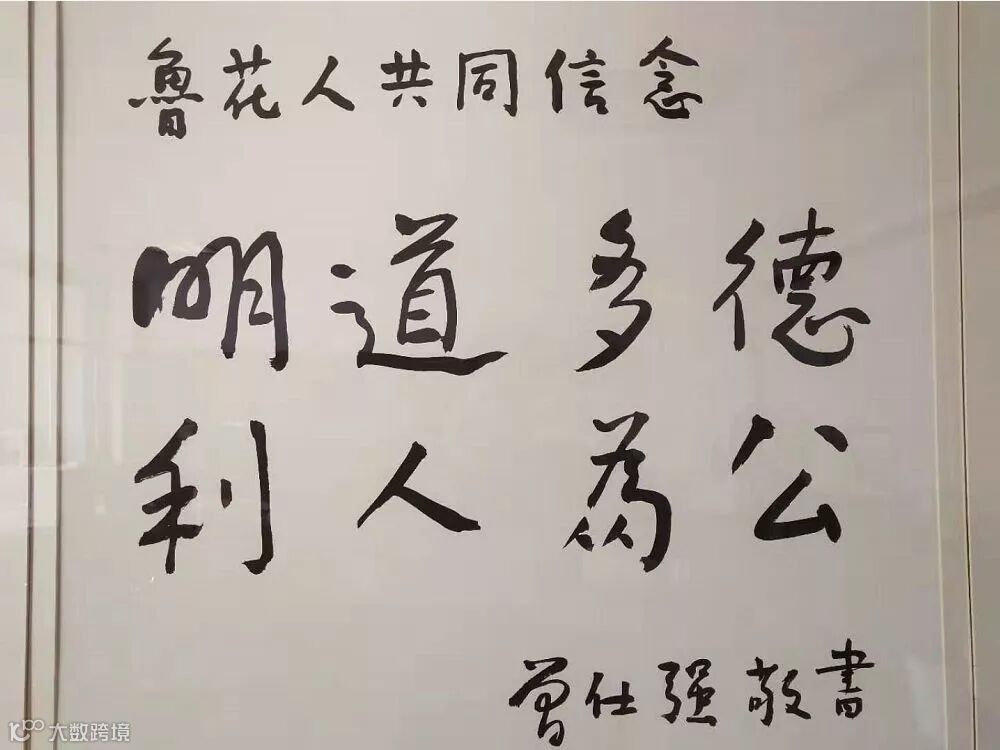 魯花人共同信念
明道多德
利人為公
曾仕强敬書
100 大数跨境